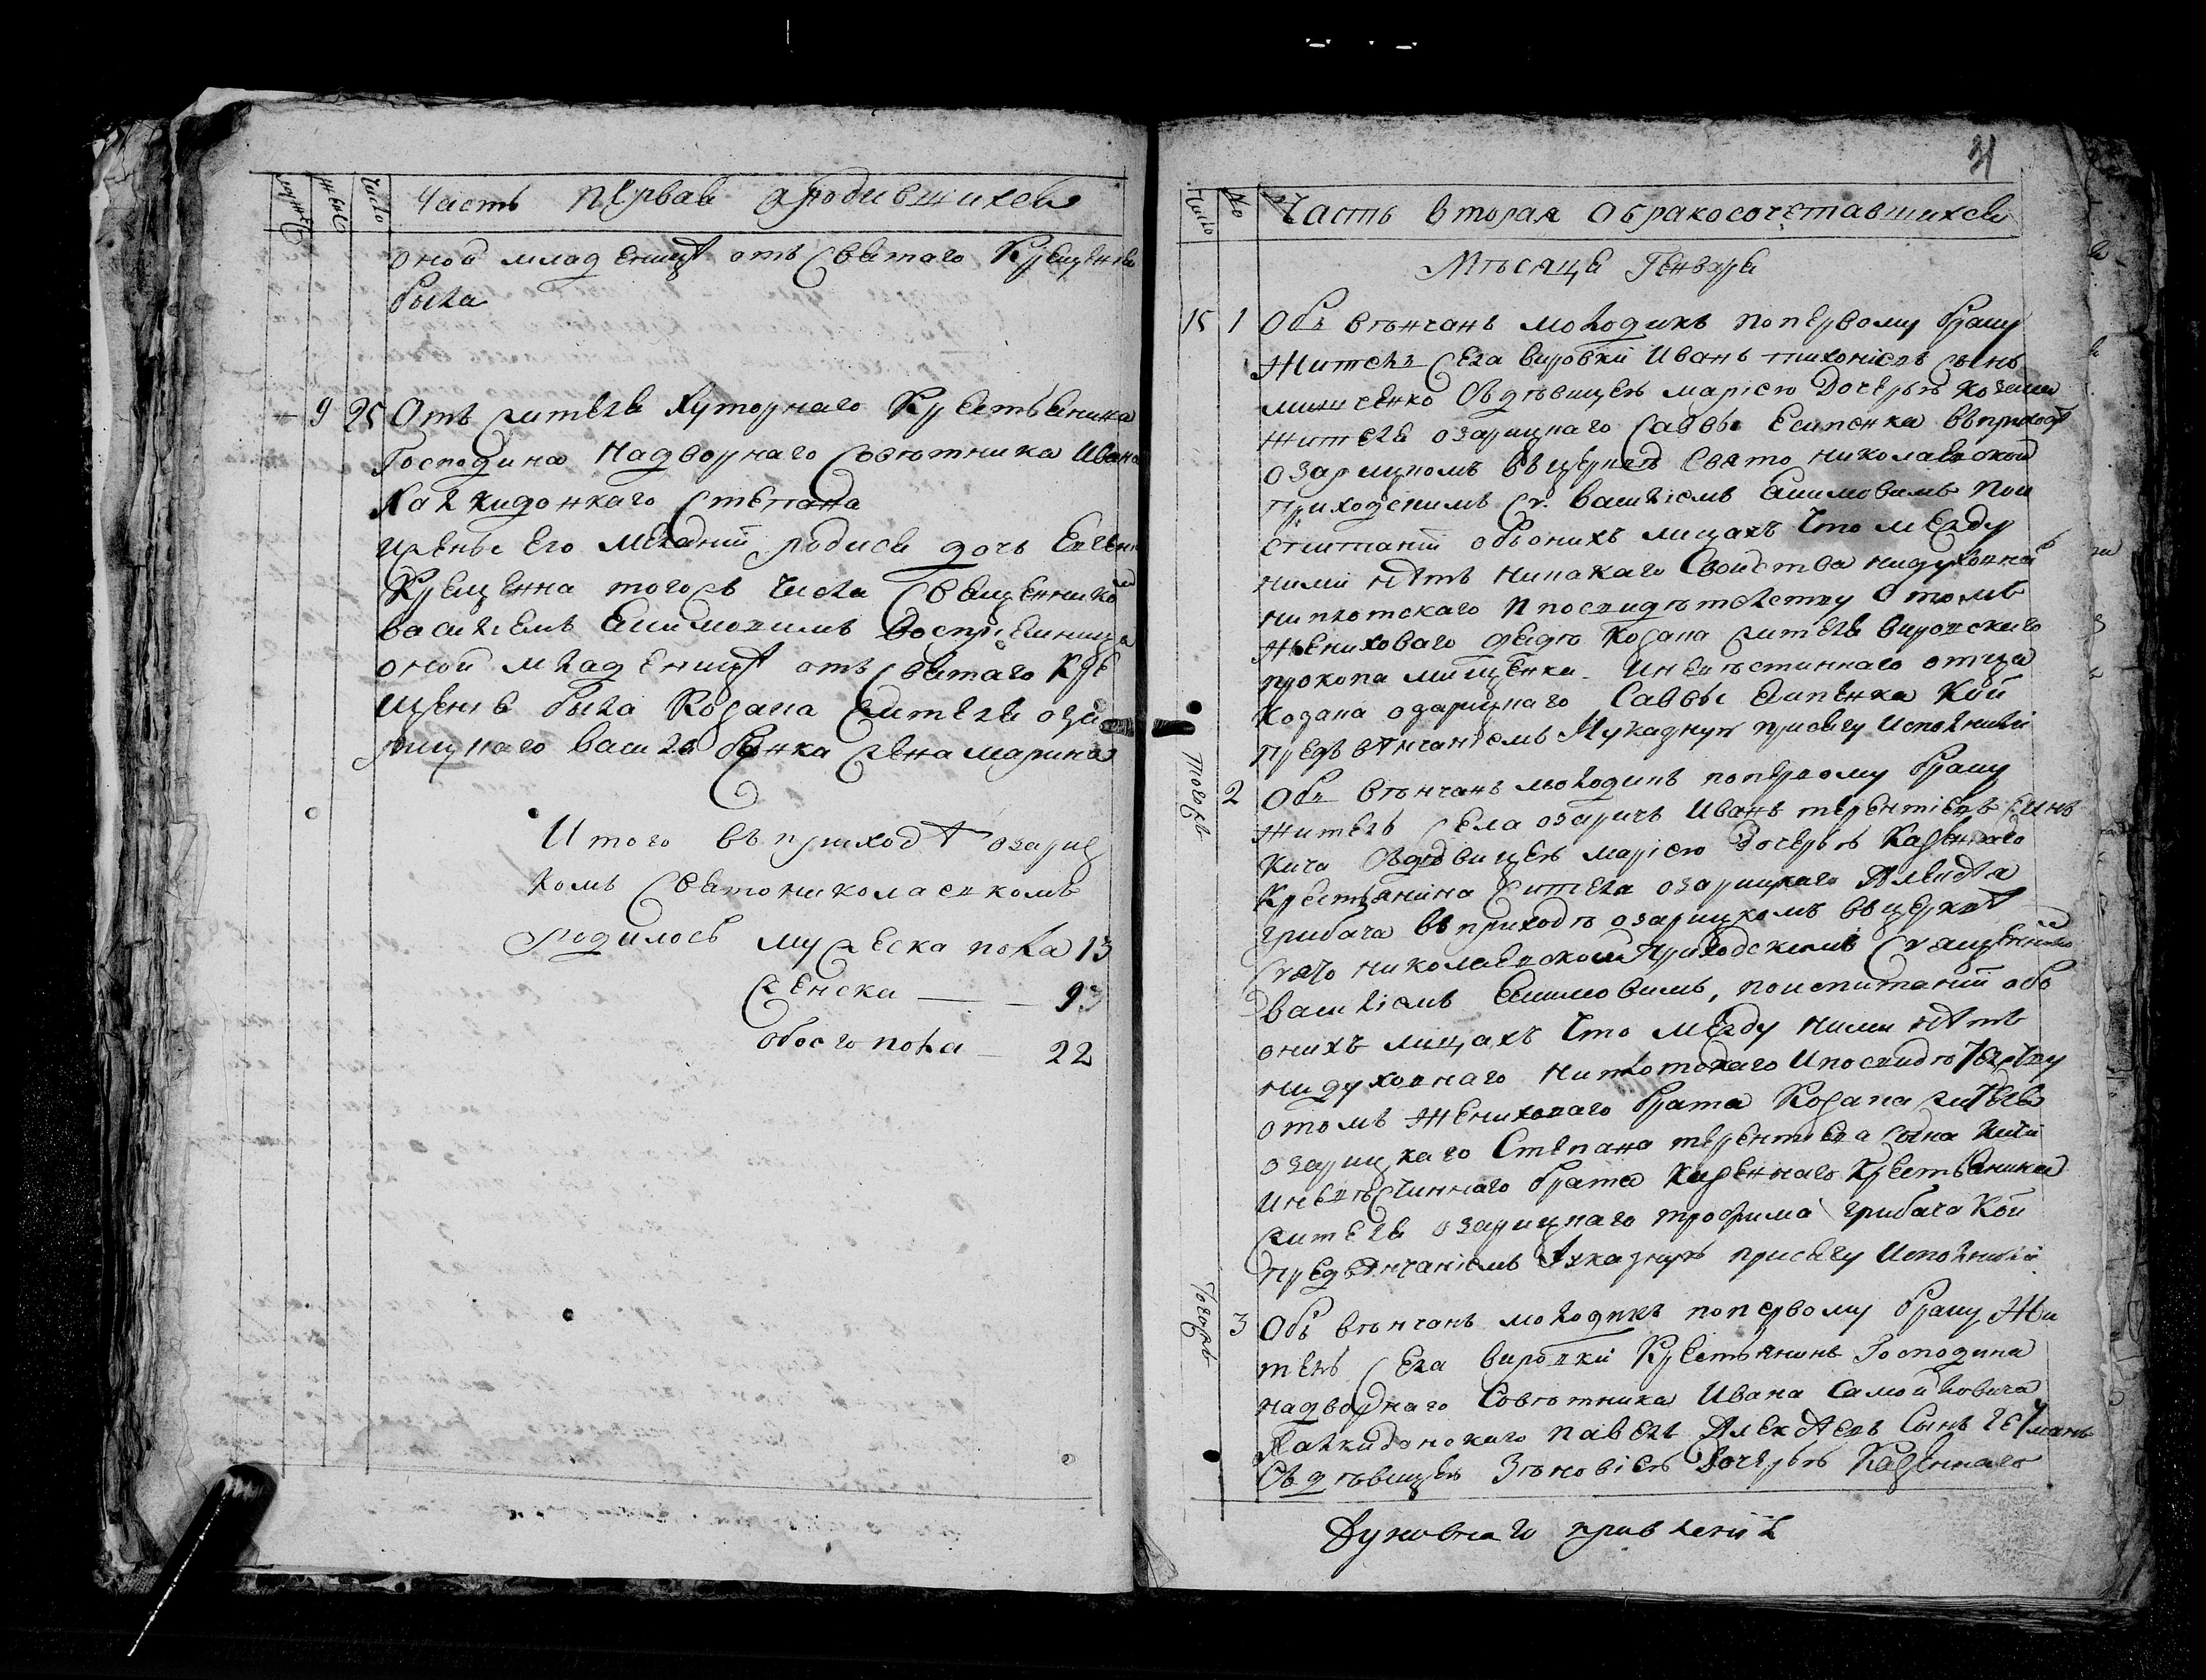 мужеска
женска
число
Часть первая о родившихся
оной младеницѣ отъ святаго Крещенія
была
9 25 Отъ жителя хуторнаго Крестьянина
Господина Надворнаго Совѣтника Ивана
Халкидонкаго Степана
и жены его Меланіи родися дочь Евгенія
Крещенна тогожъ числа Священникомъ
василіемъ Ешимовимъ воспріемница
оной младеницѣ отъ святаго Кре
щенія была Козака жителя оза
рицкаго василя жена марина
Итого въ приходѣ озариц
комъ Святониколаевкомъ
родилось мужеска пола 13
женска 9
обоего пола 22
31
число
№
Часть вторая обракосочетавшихся
Мѣсяца Генваря
15 1 Объ вѣнчанъ молодикъ поперьвому браку
житель села вировки Иванъ тихоніевъ сынъ
мищенко съдѣвицею маріею дочерью козака
жителя озарицкаго Саввы Есипенка въприходѣ
озарицкомъ въцерквѣ свято николаевской
приходскимъ Св. василіемъ Ешимовимъ пои
спитаніи объонихъ лицахъ что между
ними нѣтъ никакаго свойства нидуховнаго
ниплотскаго и посвидѣтелству отомъ
жениховаго дядѣ козака жителя вировскаго
прокопа мищенка. Иневѣстиннаго отца
козака озарицкаго Саввы Есипенка кои
предъ вѣнчаніемъ Иуказную присягу исполнили
тогожъ 2 Объ вѣнчанъ молодикъ поперьвому браку
житель села озаричъ Иванъ терентіевъ сынъ
кича съдѣвицею маріею дочерью казеннаго
крестьянина жителя озарицкаго
грибача въ приходѣ озарицкомъ въцерквѣ
свято николаевской приходскимъ Священникомъ
василіемъ Ешимовимъ, поиспитаніи объ
онихъ лицахъ что между ними нѣтъ
нидуховнаго ниплотскаго Ипосвидѣтелству
отомъ жениховаго брата козака жителя
озарицкаго Степана терентіева сына кичи
Иневѣстиннаго брата казеннаго крестьянина
жителя озарицкаго трофима грибача кои
предъвѣнчаніемъ указную присягу исполнили
тогожъ 3 Объ вѣнчанъ молодикъ поперьвому браку жи
тель села вировки крестьянинъ Господина
надворнаго Совѣтника Ивана Самойловича
Халкидонскаго павелъ Алексѣевъ сынъ гетманъ
съдѣвицею Зѣновіею дочерью казеннаго
Духовнаго правленія